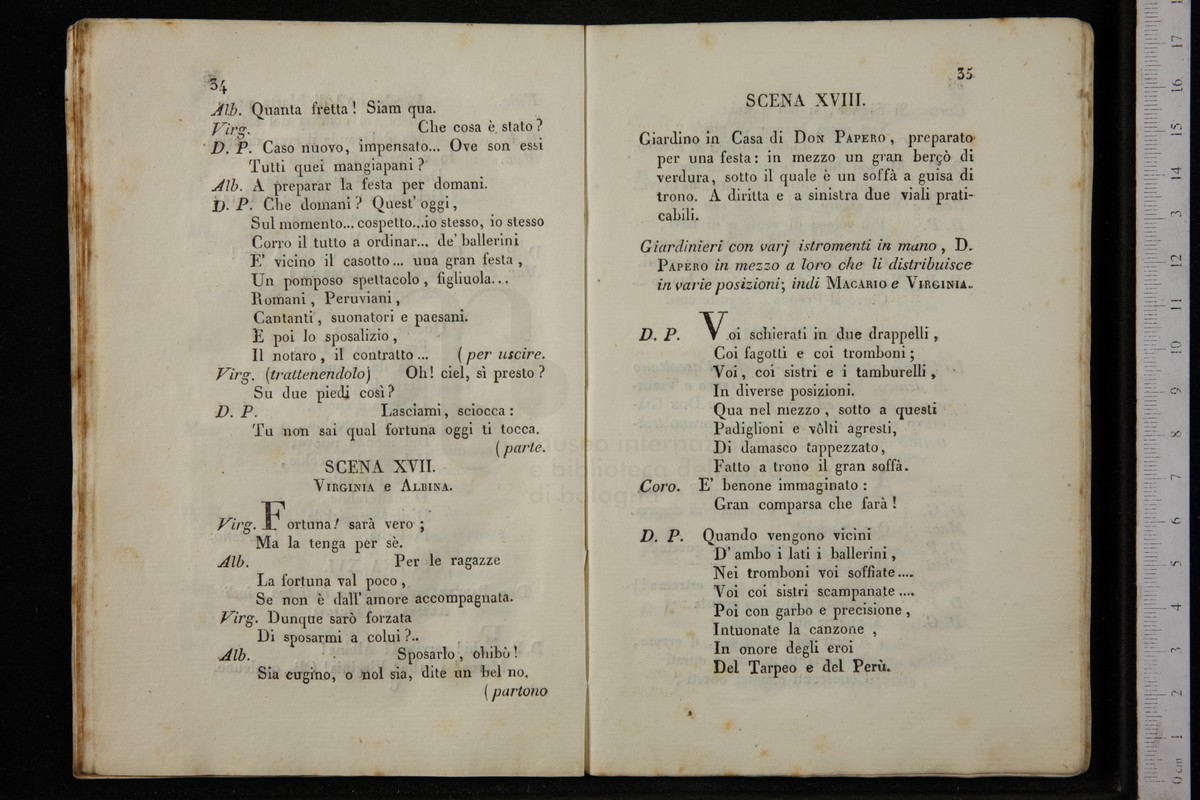 34
Alb. Quanta fretta! Siam qua.
Virg. Che cosa è stato?
D. P. Caso nuovo, impensato... Ove son essi
Tutti quei mangiapani?
Alb. A preparar la festa per domani.
D. P. Che domani? Quest' oggi,
Sul momento... cospetto...io stesso, io stesso
Corro il tutto a ordinar... de' ballerini
E' vicino il casotto... una gran festa,
Un pomposo spettacolo, figliuola...
Romani, Peruviani,
Cantanti, suonatori e paesani.
E poi lo sposalizio,
Il notaro, il contratto... (per uscire.
Virg. (trattenendolo) Oh! ciel, sì presto?
Su due piedi così?
D. P. Lasciami, sciocca:
Tu non sai qual fortuna oggi ti tocca.
(parte.
SCENA XVII.
VIRGINIA e ALBINA.
Virg. Fortuna! sarà vero;
Ma la tenga per sè.
Alb. Per le ragazze
La fortuna val poco,
Se non è dall' amore accompagnata.
Virg. Dunque sarò forzata
Di sposarmi a colui?..
Alb. Sposarlo, ohibò!
Sia cugino, o nol sia, dite un bel no.
(partono
35
SCENA XVIII.
Giardino in Casa di DON PAPERO, preparato
per una festa: in mezzo un gran berçò di
verdura, sotto il quale è un soffà a guisa di
trono. A diritta e a sinistra due viali prati-
cabili.
Giardinieri con varj istromenti in mano, D.
PAPERO in mezzo a loro che li distribuisce
in varie posizioni; indi MACARIO e VIRGINIA.
D. P. Voi schierati in due drappelli,
Coi fagotti e coi tromboni;
Voi, coi sistri e i tamburelli,
In diverse posizioni.
Qua nel mezzo, sotto a questi
Padiglioni e vôlti agresti,
Di damasco tappezzato,
Fatto a trono il gran soffà.
Coro. E' benone immaginato:
Gran comparsa che farà!
D. P. Quando vengono vicini
D' ambo i lati i ballerini,
Nei tromboni voi soffiate....
Voi coi sistri scampanate....
Poi con garbo e precisione,
Intuonate la canzone,
In onore degli eroi
Del Tarpeo e del Perù.
museo internaz
e biblioteca del
di bologna
0 cm 1 2 3 4 5 6 7 8 9 10 11 12 13 14 15 16 17